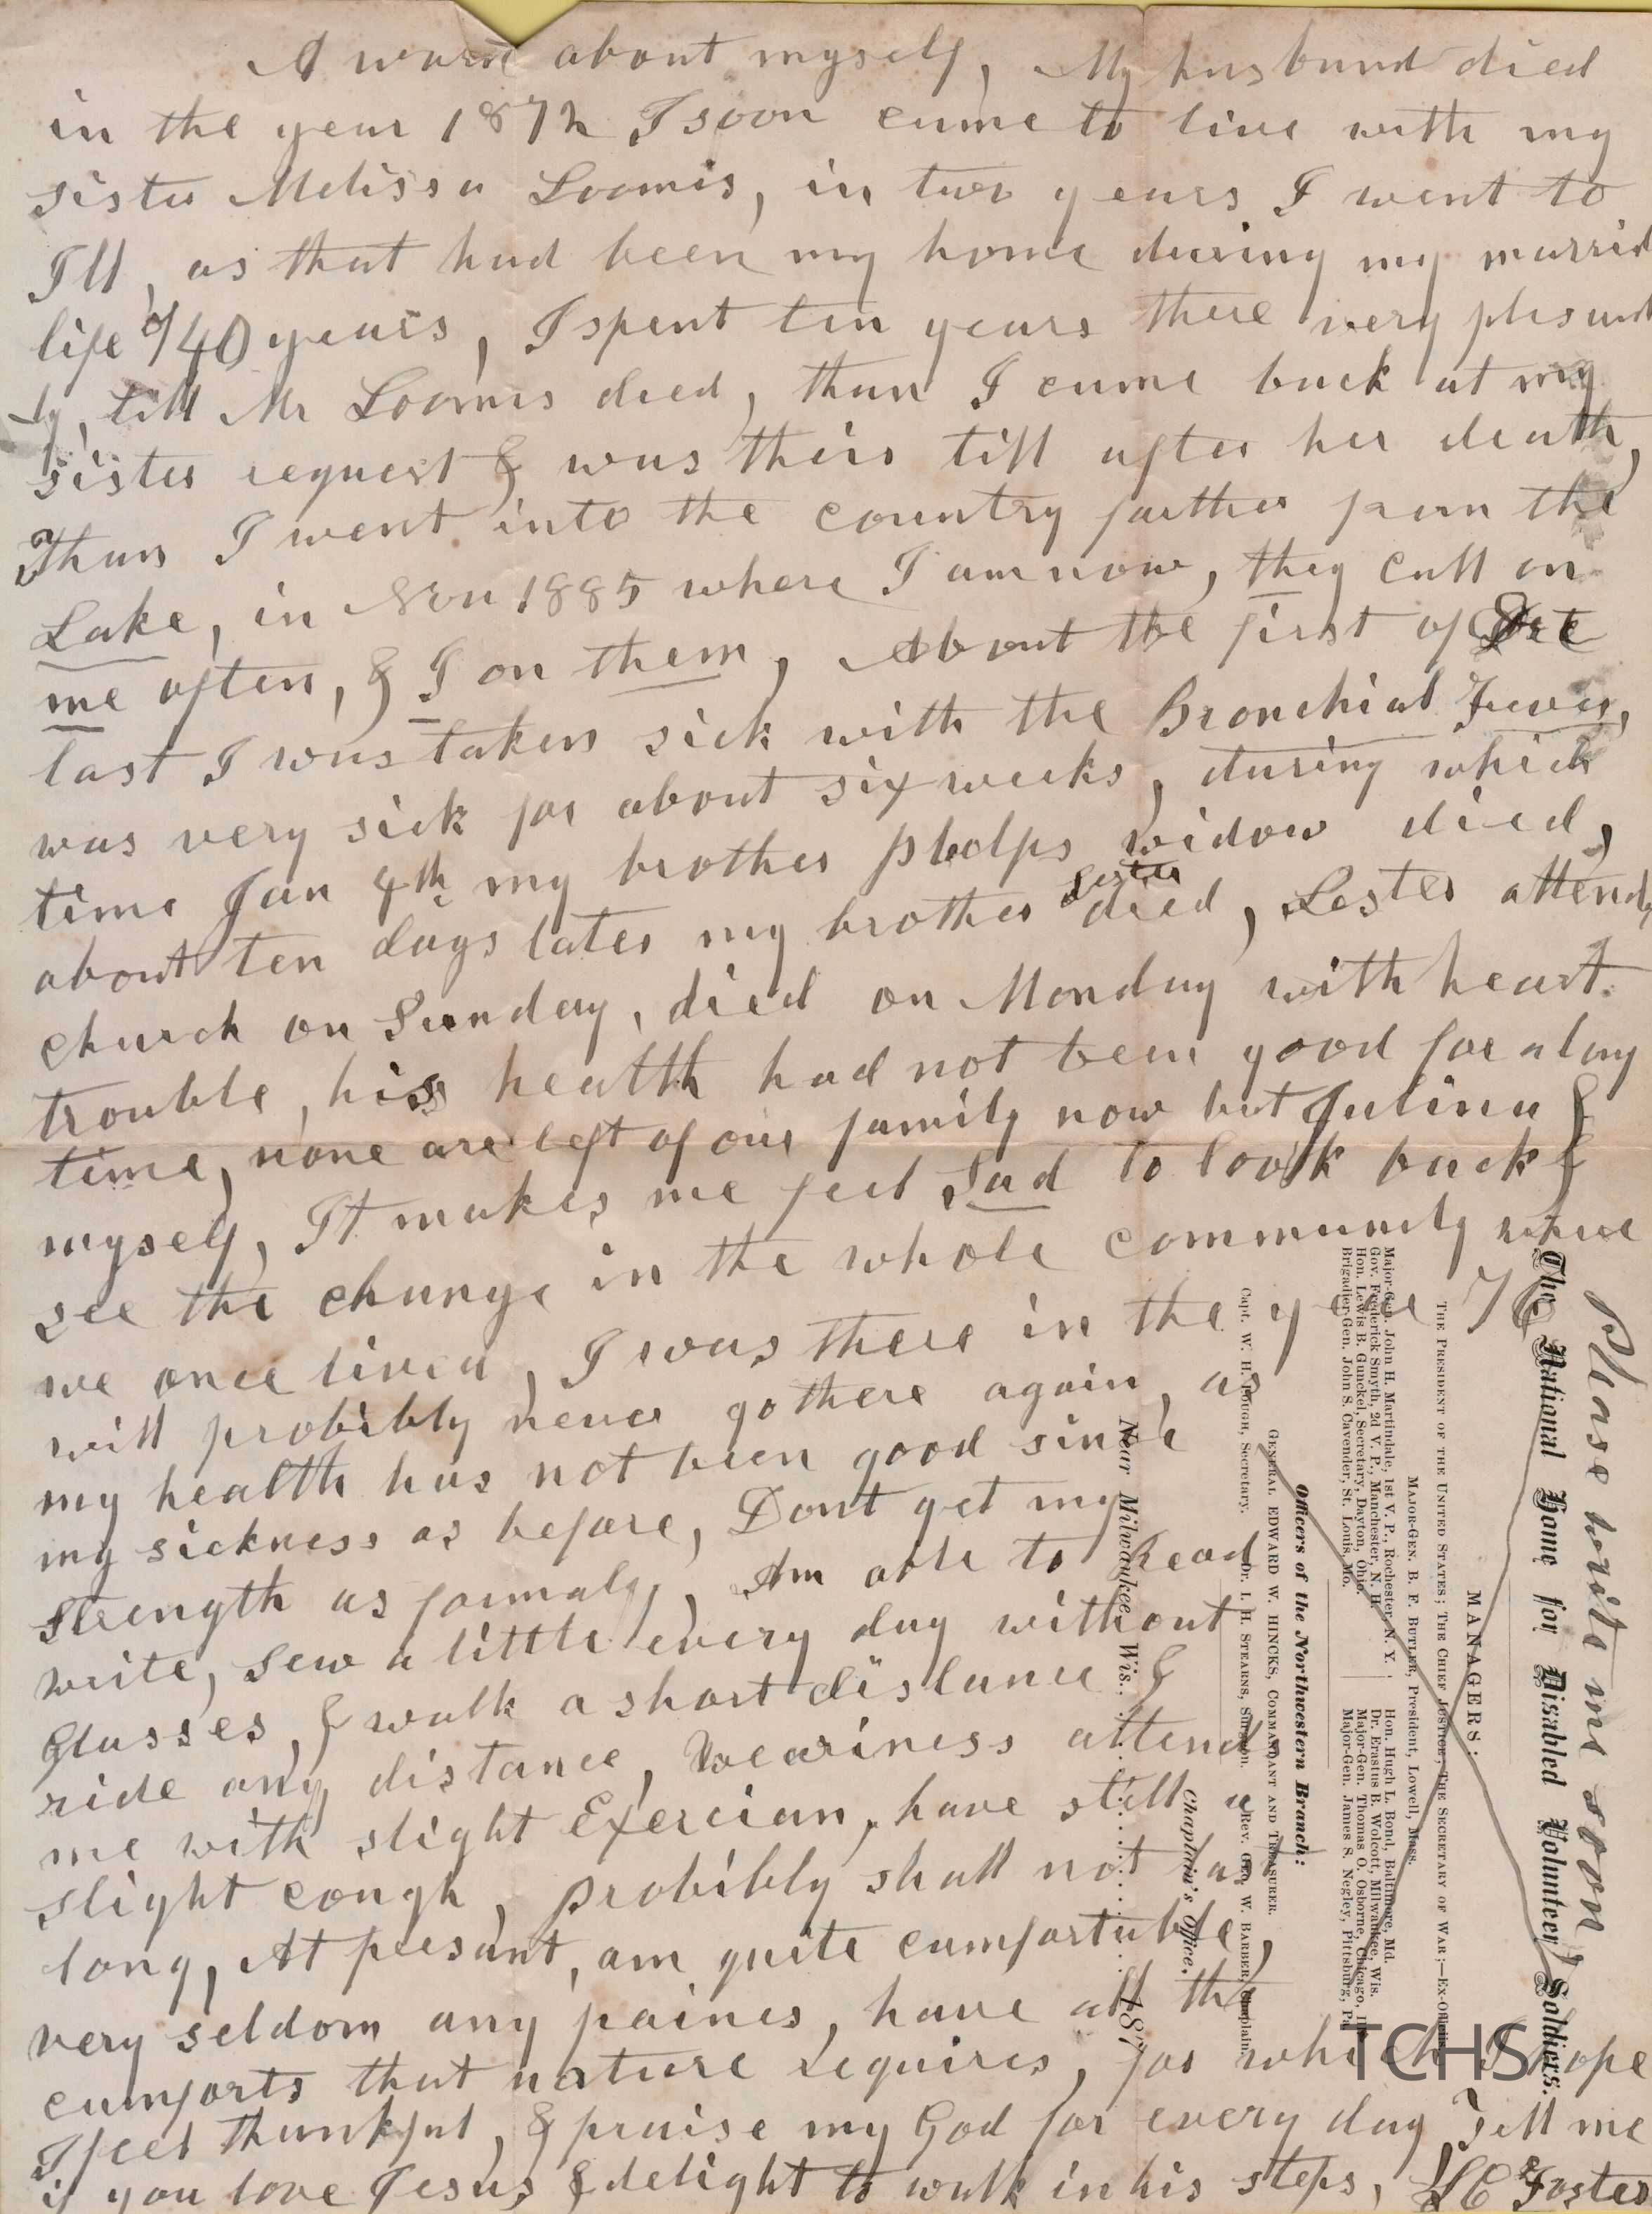 A word about myself, My husbund died
in the year 1872 I soon came to live with my
sister Melissa Loomis, in two years I went to
Ill, as that had been my home during my marrid
life of 40 years, I spent ten years there very plesunt
ly, till Mr Loomis died, than I came back at my
sister request & was thire till after her death,
Than I went into the country farther from the
Lake, in Nov 1885 where I am now, they call on
me often, & I on them, About the first of Dec
last I was taken sick with the Bronchial Fever,
was very sick for about six weeks, during which
time Jan 4th my brother Phelps widow died,
about ten days later my brother Lester died, Lester attend
church on Sunday, died on Monday with heart
trouble, his health had not been good for a long
time, none are left of our family now but Julina &
myself, It makes me feel Sad to look back &
see the change in the whole community where
we once lived, I was there in the year 76
will probibly never go there again, as
my health has not been good since
my sickness as before, Dont get my
strength as formaly, Am able to Read
write, sew a little every day without
Glasses, & walk a short distance &
ride any distance, Weariness attend
me with slight Exercian, have still a
slight cough, probibly shall not last
long, At presant, am quite cumfortuble,
very seldom any paines, have all the
cumforts that nature requires, for which I hope
I feel thankful, & praise my God for every day Tell me
if you love Jesus & delight to walk in his steps, L C Foster
Please write me soon
The National Home for Disabled Volunteer Soldiers.
MANAGERS:
THE PRESIDENT OF THE UNITED STATES; THE CHIEF JUSTICE; THE SECRETARY OF WAR;—EX-OFFICIO
MAJOR-GEN. B. F. BUTLER, President, Lowell, Mass.
Major-Gen. John H. Martindale, 1st V. P., Rochester, N. Y. Hon. Hugh L. Bond, Baltimore, Md.
Gov. Frederick Smyth, 2d V. P., Manchester, N. H. Dr. Erastus B. Wolcott, Milwaukee, Wis.
Hon. Lewis B. Gunckel, Secretary, Dayton, Ohio. Major-Gen. Thomas O. Osborne, Chicago, Ill.
Brigadier-Gen. John S. Cavender, St. Louis, Mo. Major-Gen. James S. Negley, Pittsburg, Pa.
Officers of the Northwestern Branch:
GENERAL EDWARD W. HINCKS, COMMANDANT AND TREASURER.
Capt. W. H. LOUGH, Secretary. Dr. I. H. STEARNS, Surgeon. Rev. GEO. W. BARBER, Chaplain.
Chaplain's Office,
Near Milwaukee, Wis., 187
TCHS